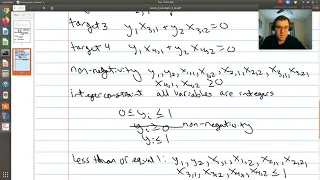 target 3 y₁x₃,₁ + y₂x₃,₂ = 0
target 4 y₁x₄,₁ + y₂x₄,₂ = 0
non-negativity y₁, y₂, x₁,₁, x₁,₂, x₂,₁, x₂,₂, x₃,₁, x₃,₂,
x₄,₁, x₄,₂ ≥ 0
integer constraint all variables are integers
0 ≤ yᵢ ≤ 1
yᵢ ≥ 0 non-negativity
yᵢ ≤ 1
less than or equal 1: y₁, y₂, x₁,₁, x₁,₂, x₂,₁, x₂,₂,
x₃,₁, x₃,₂, x₄,₁, x₄,₂ ≤ 1